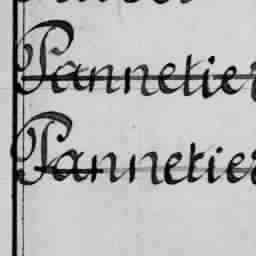 Pannetier
Pannetier